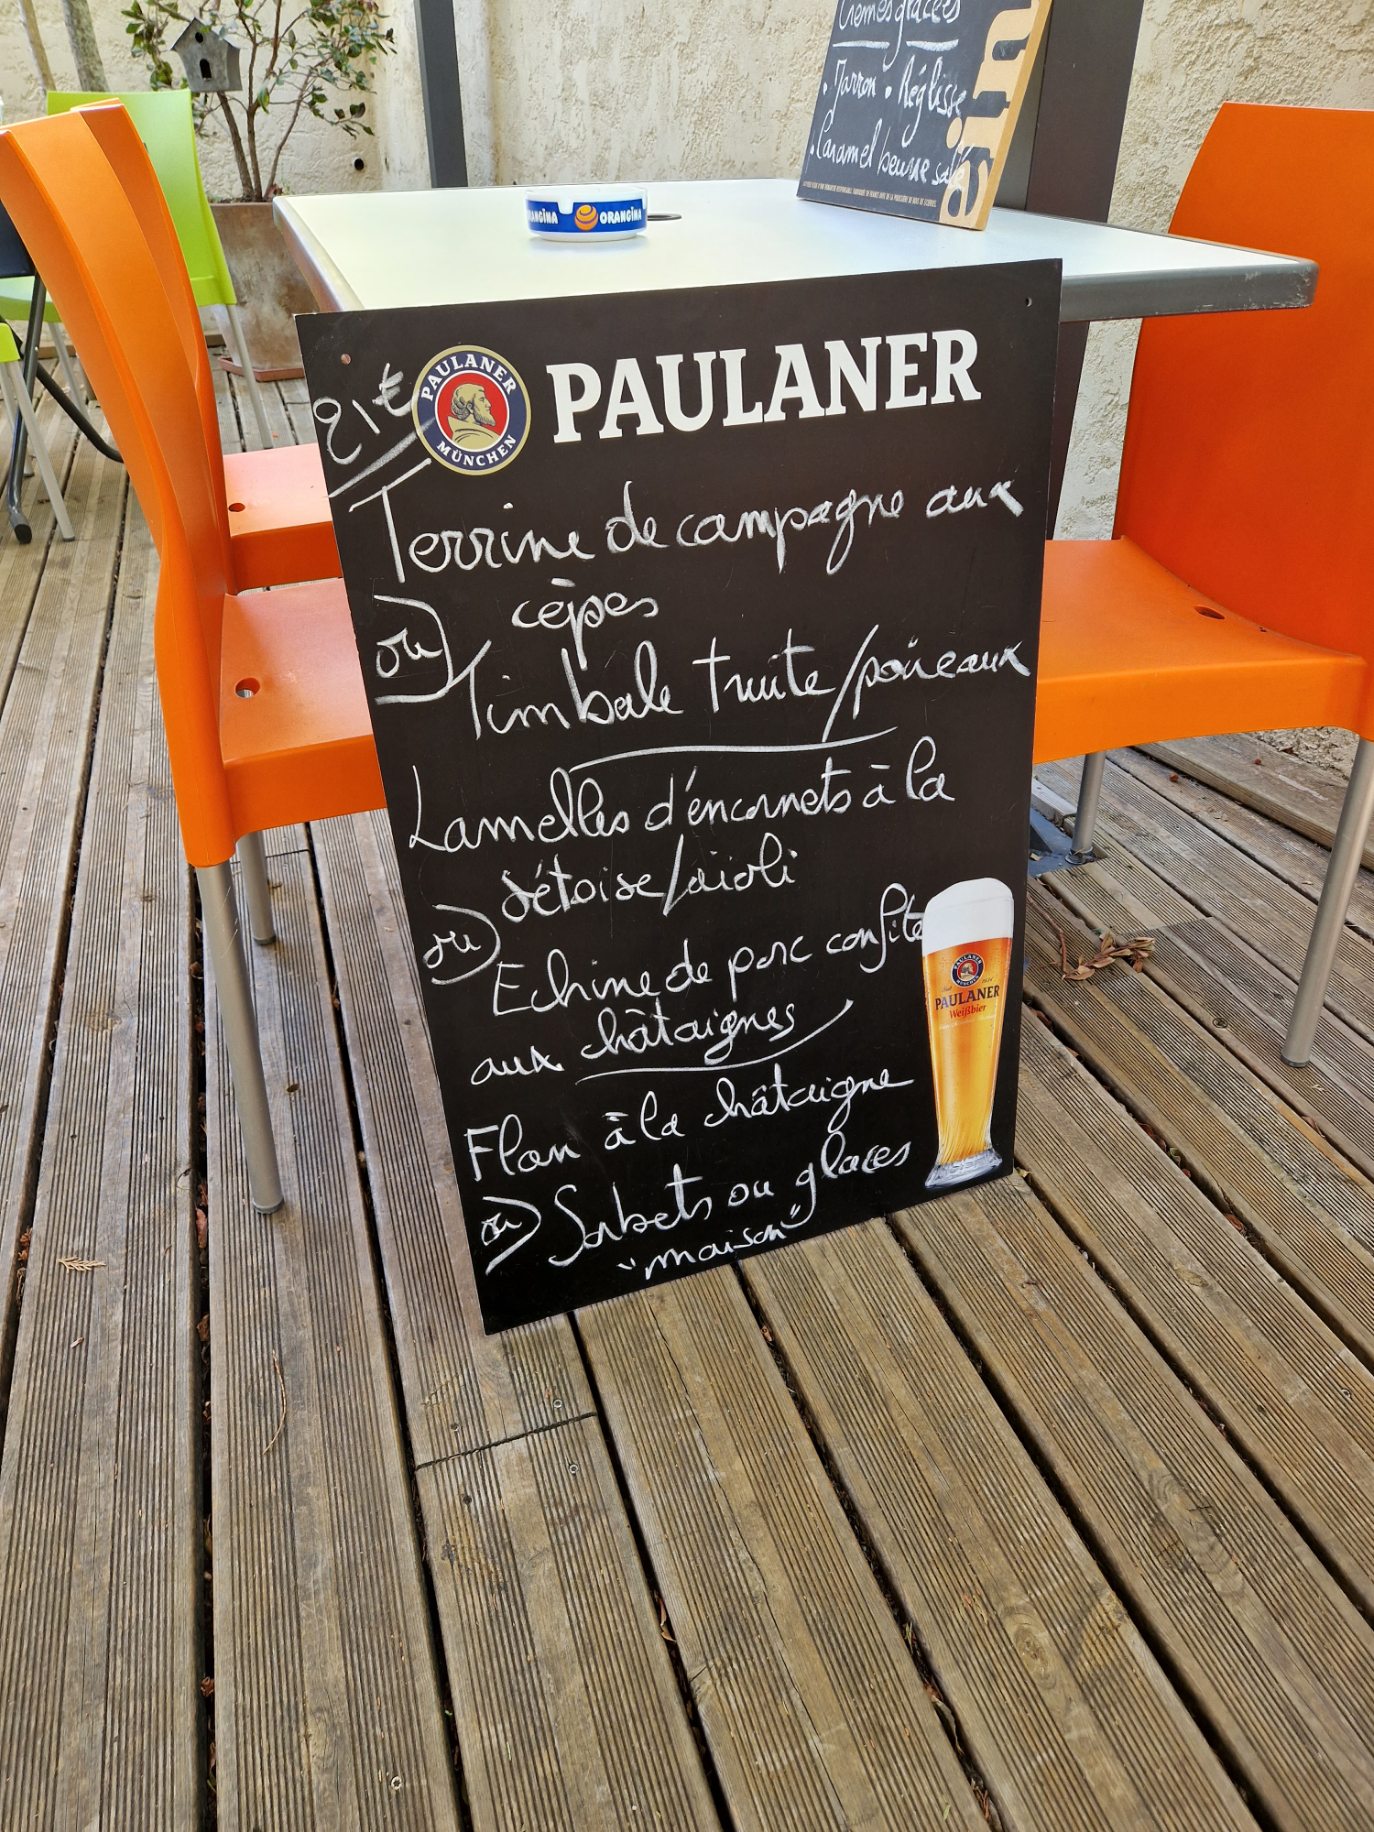 Crèmes glacées
• Marron • Réglisse
• Caramel beurre salé
ORANGINA ORANGINA
21€
PAULANER
MÜNCHEN
PAULANER
Terrine de campagne aux
cèpes
ou
Timbale truite/poireaux
Lamelles d'encornets à la
sétoise/aïoli
ou
Echine de porc confite
aux châtaignes
Flan à la châtaigne
ou
Sorbets ou glaces
"maison"
PAULANER
PAULANER
Weißbier